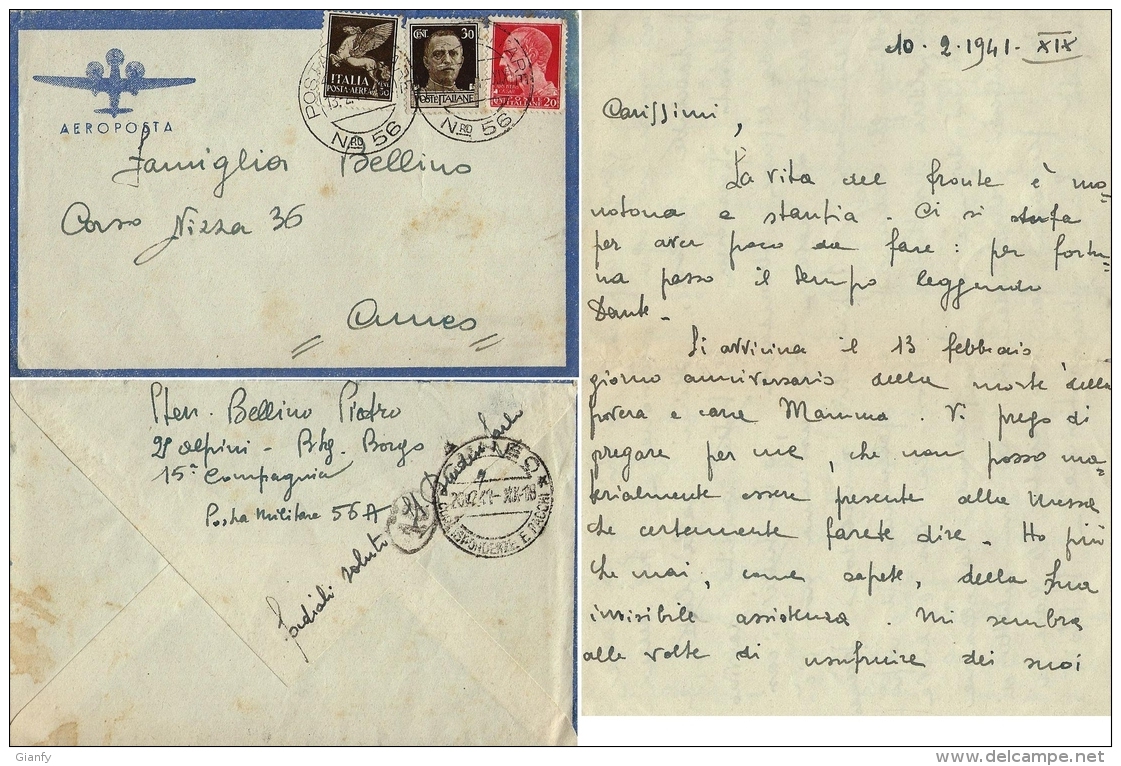 AEROPOSTA
ITALIA
POSTA AEREA
CENT. 30
POSTE ITALIANE
CENT. 20
Nro 56
Nro 56
Famiglia Bellino
Corso Nizza 36
Cuneo
Sten. Bellino Pietro
2º alpini - Btg. Borgo
15ª Compagnia
Posta Militare 56 A
Cordiali saluti
CUNEO
CORRISPONDENZE E PACCHI
10 - 2 - 1941 - XIX
Carissimi,
La vita del fronte è mo=
notona e stantia. Ci si stufa
per aver poco da fare: per fortu=
na passo il tempo leggendo
Dante.
Si avvicina il 13 febbraio
giorno anniversario della morte della
povera e cara Mamma. Vi prego di
pregare per me, che non posso ma=
terialmente essere presente alla messa
che certamente farete dire. Ho più
che mai, come sapete, della Sua
invisibile assistenza. Mi sembra
alle volte di usufruire dei suoi
Gianfy
www.delcampe.net